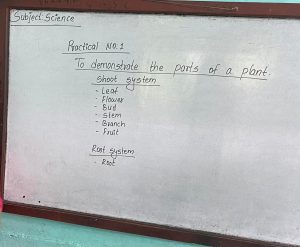 Subject: Science
Practical No: 1
To demonstrate the parts of a plant.
Shoot system
- Leaf
- Flower
- Bud
- Stem
- Branch
- Fruit
Root system
- Root